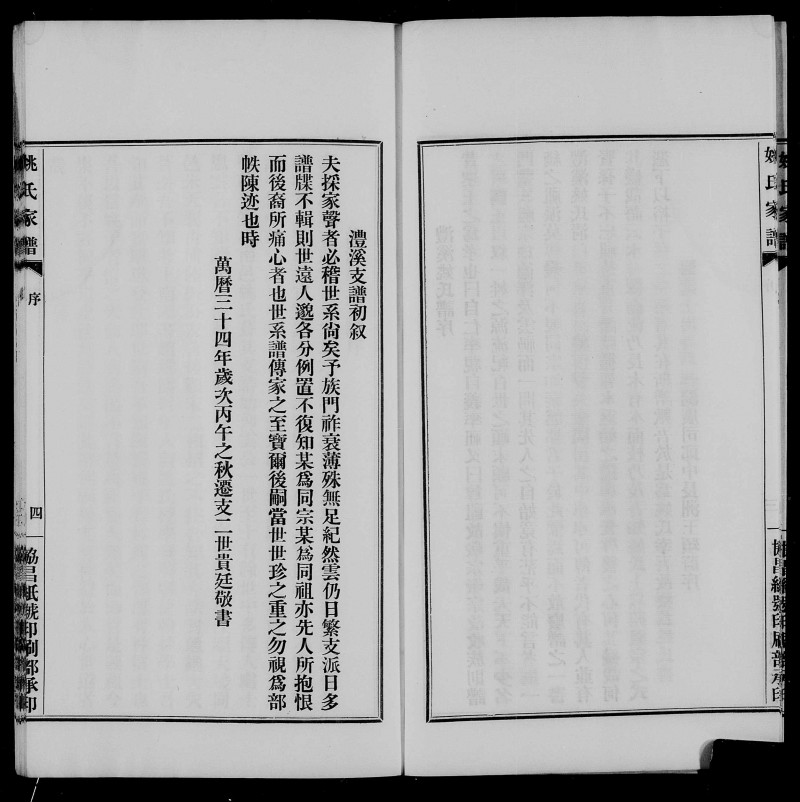 姚氏家譜
澧溪支譜初叙
夫採家聲者必稽世系尙矣予族門祚衰薄殊無足紀然雲仍日繁支派日多
譜牒不輯則世遠人邈各分例置不復知某爲同宗某爲同祖亦先人所抱恨
而後裔所痛心者也世系譜傳家之至寶爾後嗣當世世珍之重之勿視爲部
帙陳迹也時
萬曆三十四年歲次丙午之秋遷支二世貴廷敬書
姚氏家譜
序
四
協昌紙號印刷部承印